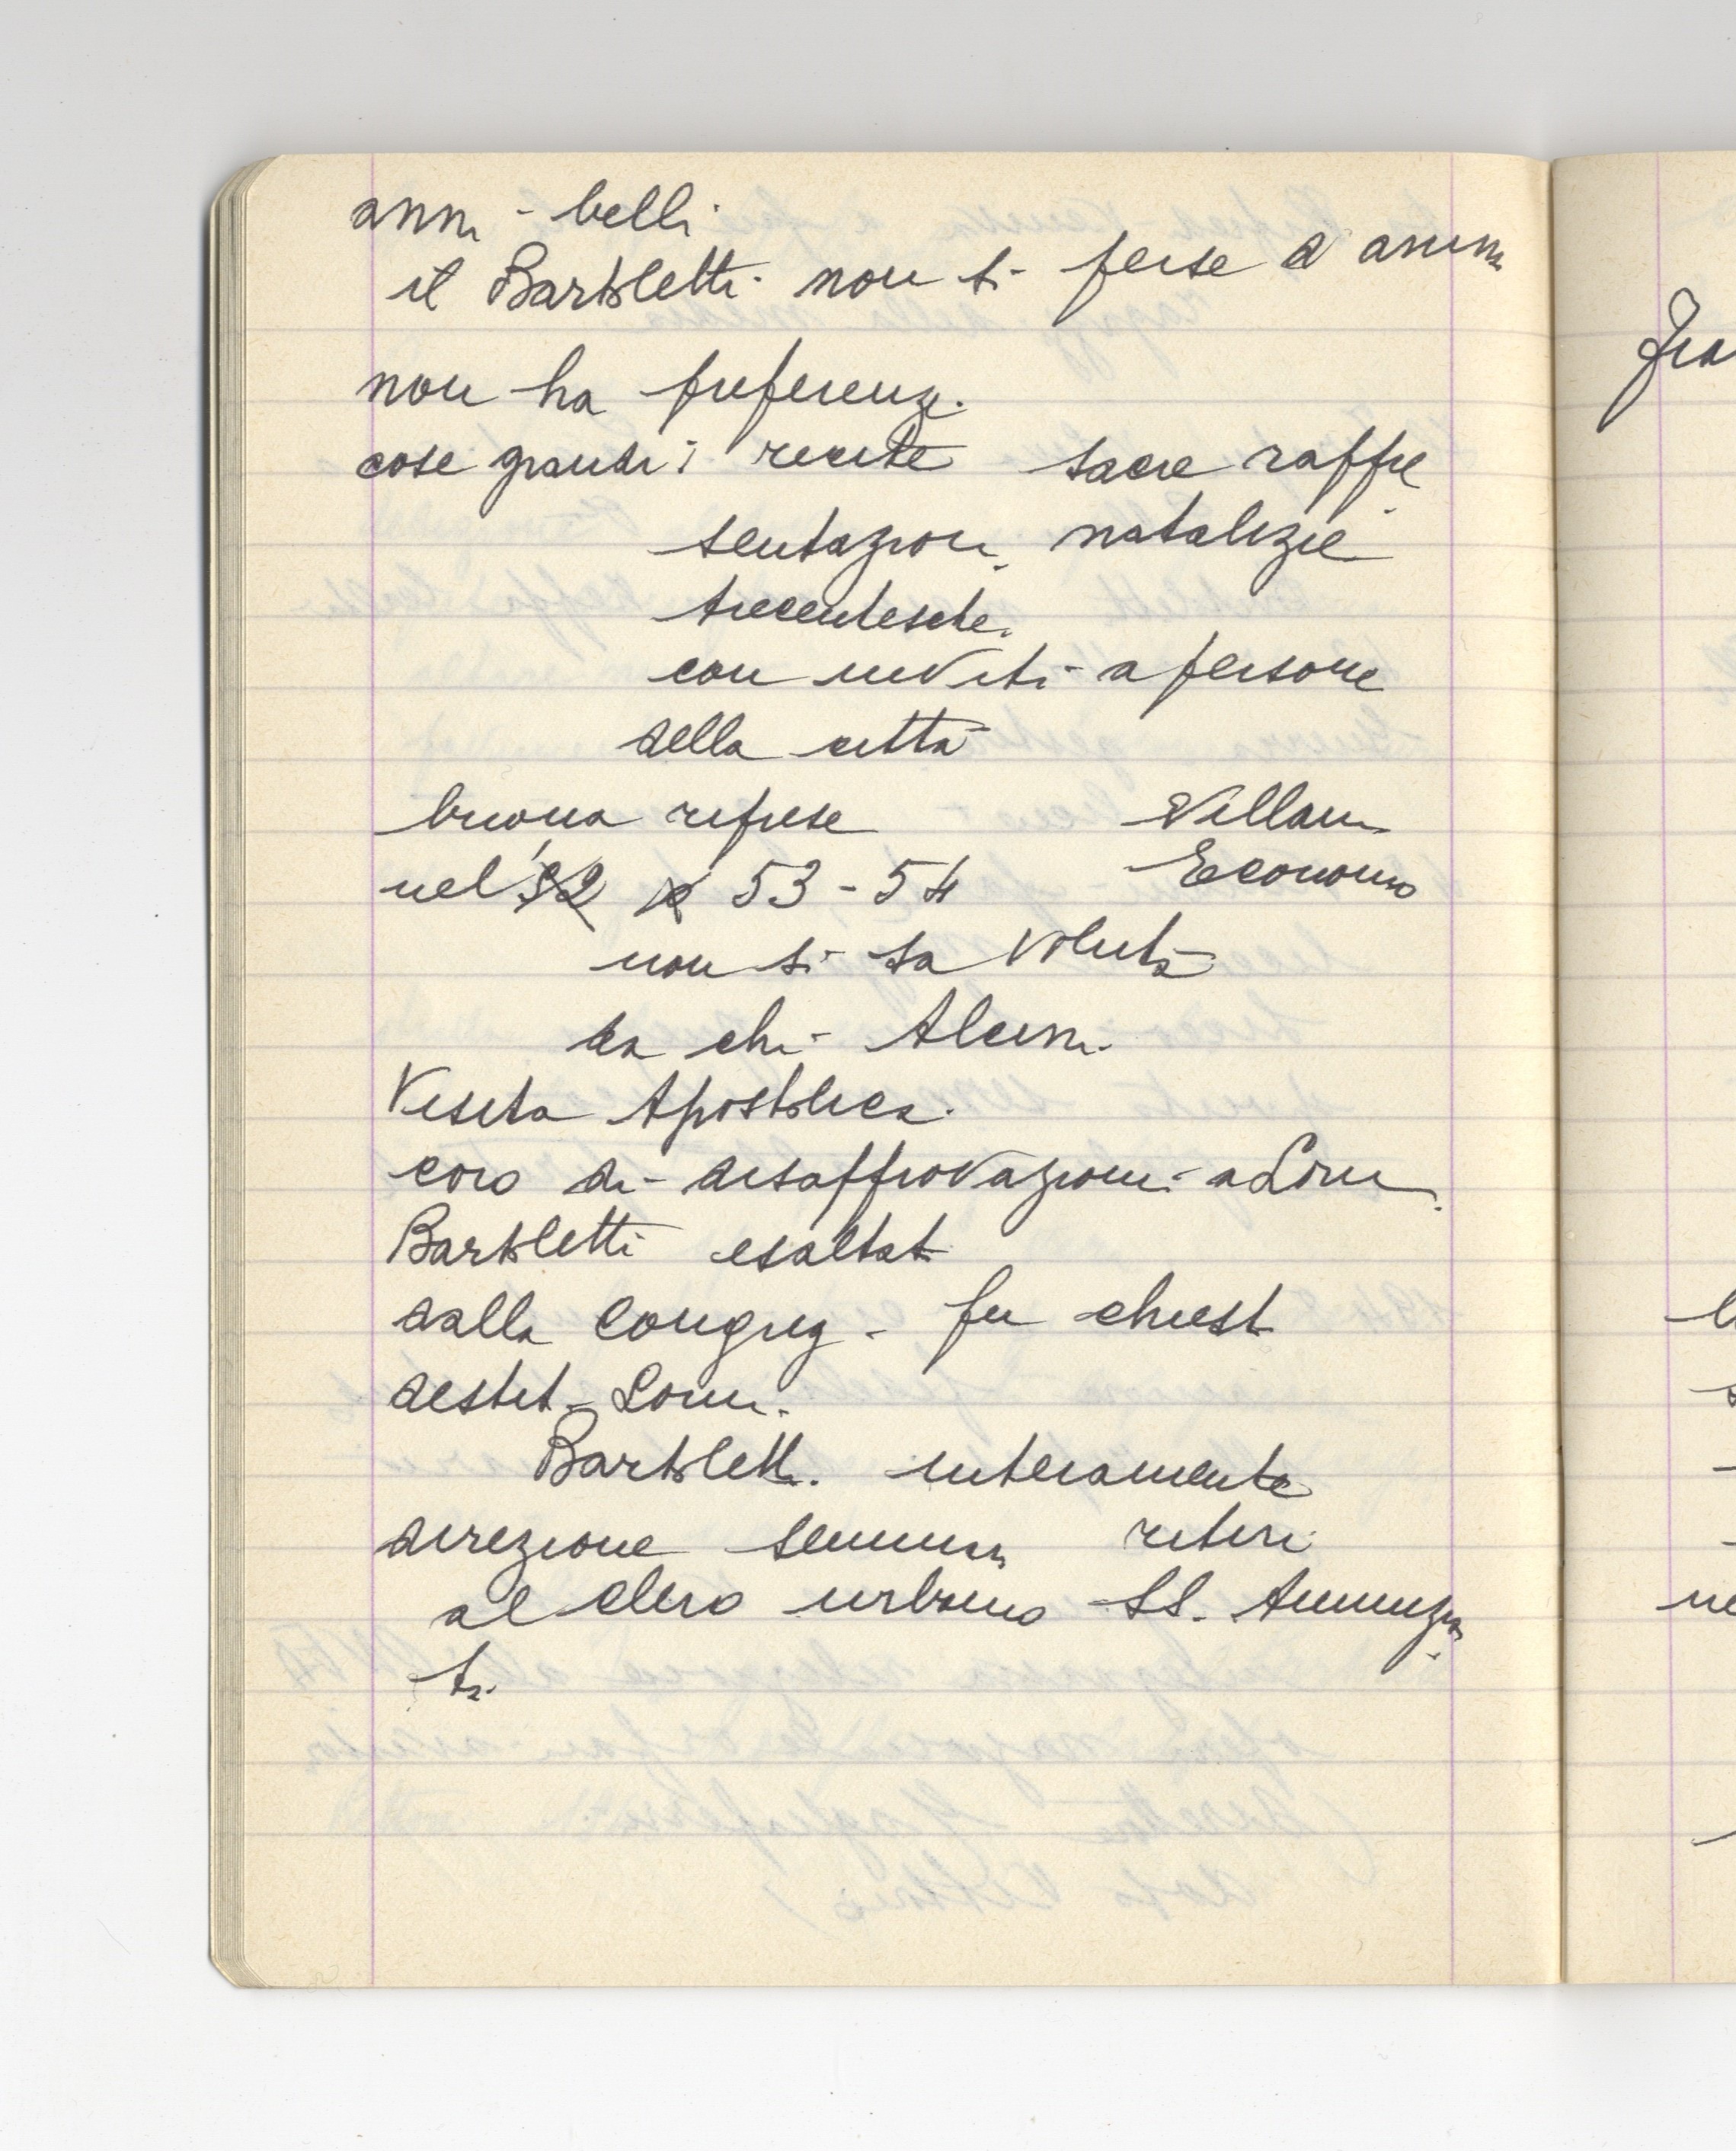 anni belli
il Bartoletti non si perse d'animo
non ha preferenze.
cose grandi: recite sacre rappre
sentazioni natalizie
trecentesche.
con inviti a persone
della città
buona riprese Villani
nel '52 e 53-54 Economo
non si sa voluta
da chi Alcuni
Visita Apostolica.
coro di disapprovazioni a Lom.
Bartoletti esaltato
dalla Congreg. fu chiesto
destit. Lom.
Bartolett. interamente
direzione semin. ritiri
al clero urbano SS. Annunzia
ta.
Fra